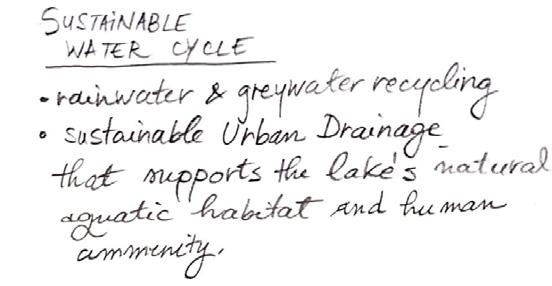 SUSTAINABLE
WATER CYCLE
• rainwater & greywater recycling
• sustainable Urban Drainage
that supports the lake's natural
aquatic habitat and human
ammenity.